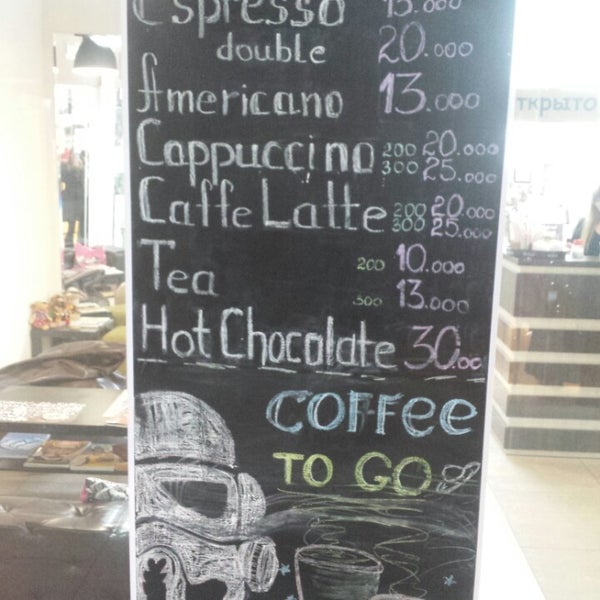 Espresso 13.000
double 20.000
Americano 13.000
Cappuccino 200 20.000
300 25.000
Caffe Latte 200 20.000
300 25.000
Tea 200 10.000
300 13.000
Hot Chocolate 30.00
COFFEE
TO GO
ткрыто